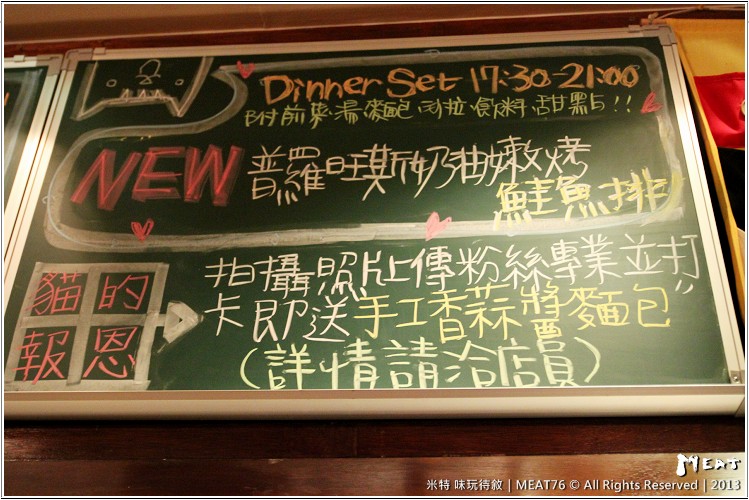 Dinner Set 17:30-21:00
附前菜湯麵包沙拉飲料甜點!!
NEW 普羅旺斯奶油嫩烤
鮭魚排
貓的
報恩
拍攝照片上傳粉絲專業並打
卡即送手工香蒜醬麵包
(詳情請洽店員)
MEAT
米特 味玩待敘 | MEAT76 © All Rights Reserved | 2013